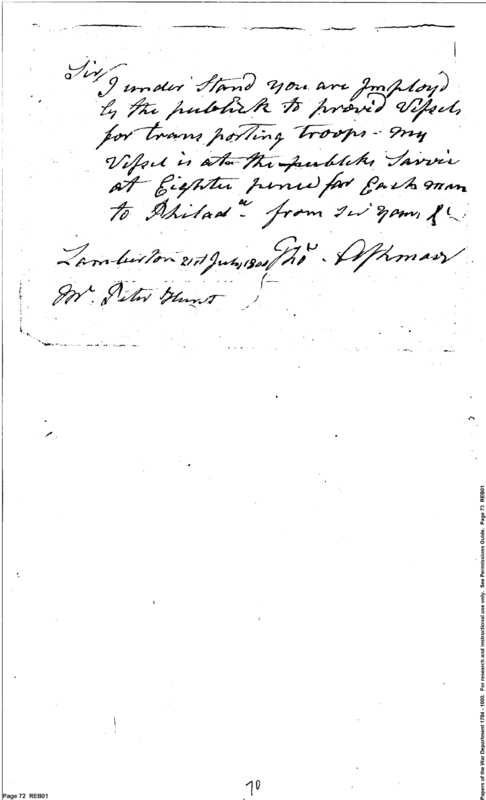 Sir
I under Stand you are Imployd
by the publick to provid Vessels
for trans porting troops - my
Vessel is att the publicks Sarvic
at Eighte pence for Each man
to Philada. from Sir yours &c
Lamberton 21st July 1800 Thos. Ashmore
Mr. Peter Hunt
70
Page 72 REB01
Papers of the War Department 1784 - 1800. For research and instructional use only. See Permissions Guide. Page 73 REB01